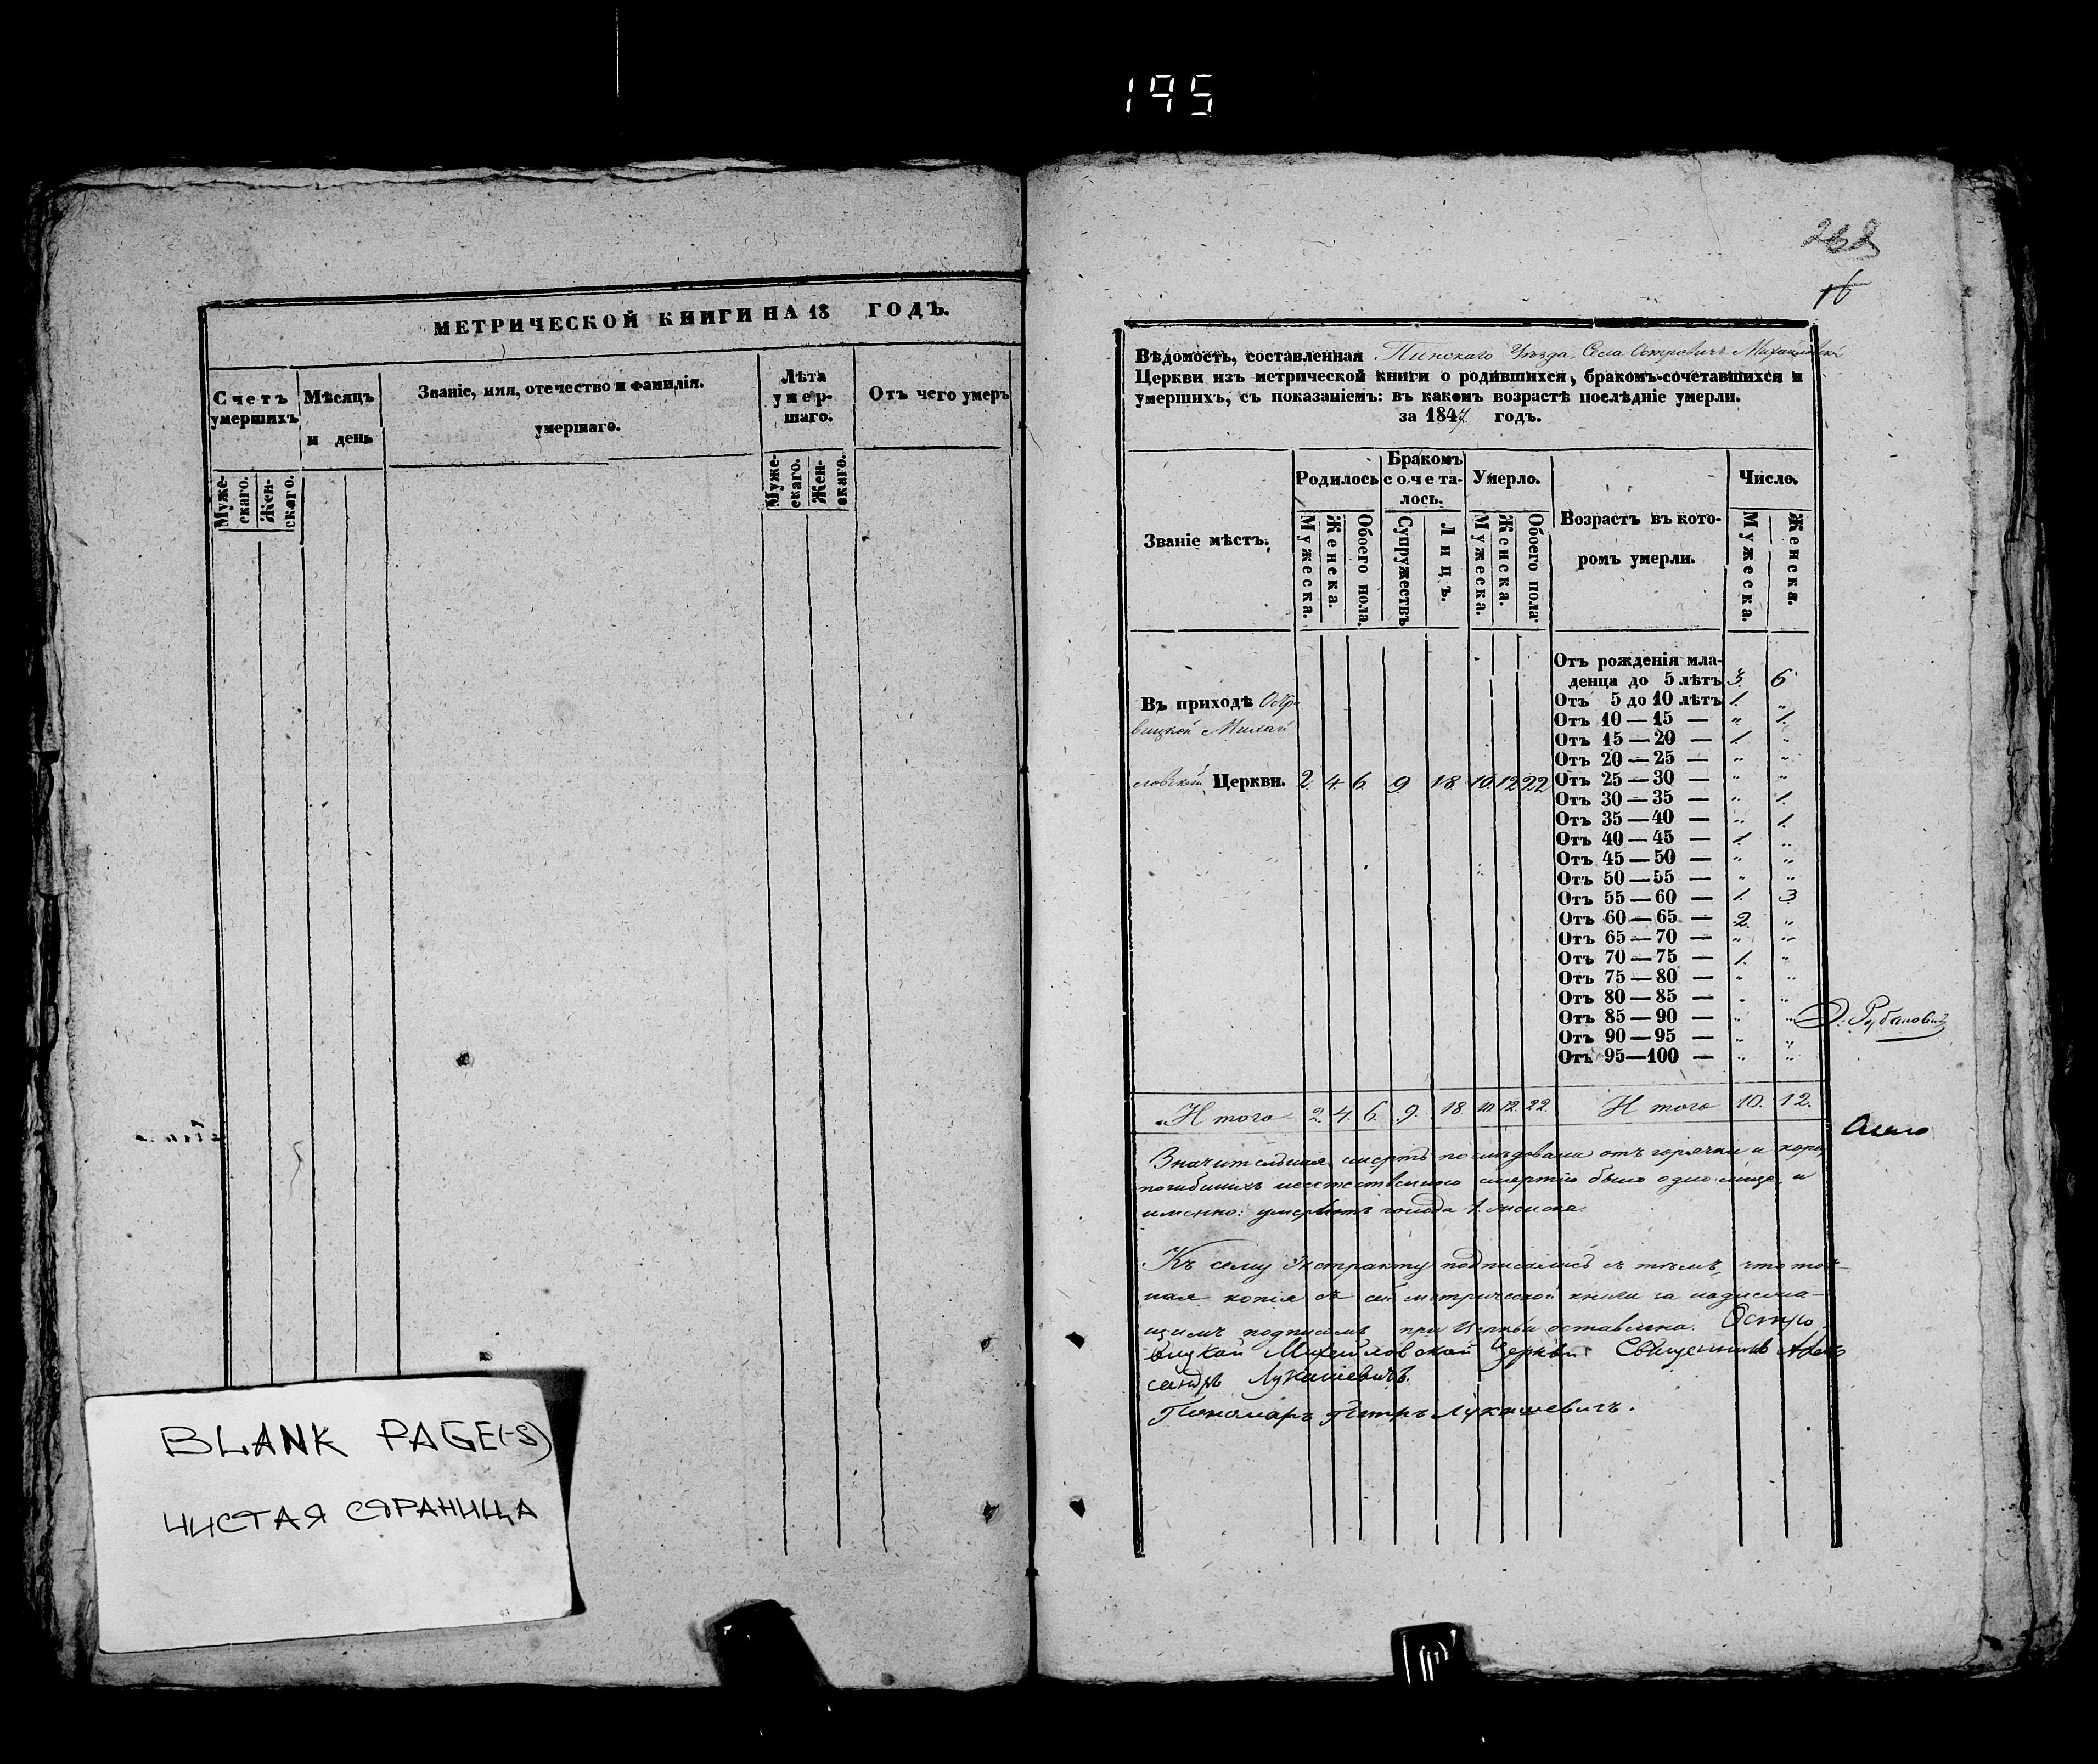 195
МЕТРИЧЕСКОЙ КНИГИ НА 18 ГОДЪ.
Счетъ умершихъ
Мѣсяцъ и день
Званіе, имя, отечество и фамилія. умершаго.
Лѣта умер-шаго.
Отъ чего умеръ
Муже-скаго.
Жен-скаго.
Муже-скаго.
Жен-скаго.
BLANK PAGE(-S)
ЧИСТАЯ СТРАНИЦА
268
Вѣдомость, составленная Пинскаго Уѣзда, Села Островичъ Михайловской
Церкви изъ метрической книги о родившихся, бракомъ-сочетавшихся и
умершихъ, съ показаніемъ: въ какомъ возрастѣ послѣдніе умерли.
за 1847 годъ.
Званіе мѣстъ.
Родилось
Бракомъ сочета-лось.
Умерло.
Возрастъ въ кото-ромъ умерли.
Число.
Мужеска.
Женска.
Обоего пола.
Супружествъ
Лицъ.
Мужеска.
Женска.
Обоего пола
Мужеска.
Женска.
Отъ рожденія мла-
денца до 5 лѣтъ 3. 6
Отъ 5 до 10 лѣтъ 1. „
Отъ 10 — 15 — „ 1.
Отъ 15 — 20 — 1. „
Отъ 20 — 25 — „ „
Отъ 25 — 30 — „ „
Отъ 30 — 35 — „ 1.
Отъ 35 — 40 — „ 1.
Отъ 40 — 45 — 1. „
Отъ 45 — 50 — „ „
Отъ 50 — 55 — „ „
Отъ 55 — 60 — 1. 3
Отъ 60 — 65 — 2. „
Отъ 65 — 70 — „ „
Отъ 70 — 75 — 1. „
Отъ 75 — 80 — „ „
Отъ 80 — 85 — „ „
Отъ 85 — 90 — „ „
Отъ 90 — 95 — „ „
Отъ 95—100 — „ „
Въ приходѣ Остро
вицкой Михай
ловской Церкви. 2. 4. 6. 9. 18. 10. 12 22
Итого 2. 4. 6. 9. 18 10. 12. 22. Итого 10. 12.
Значительная смерть послѣдовала отъ горячки и кори,
погибшихъ неестественною смертію было одно лице, и
именно: умер отъ голода 1. женска.
Къ сему Экстракту подписались съ тѣмъ, что точ-
ная копія съ сей метрической книги за надлежа-
щимъ подписомъ при Церкви оставлена. Остро
вицкой Михайловской Церкви Священникъ Алек
сандръ Лукашевичъ.
Пономарь Петръ Лукашевичъ.